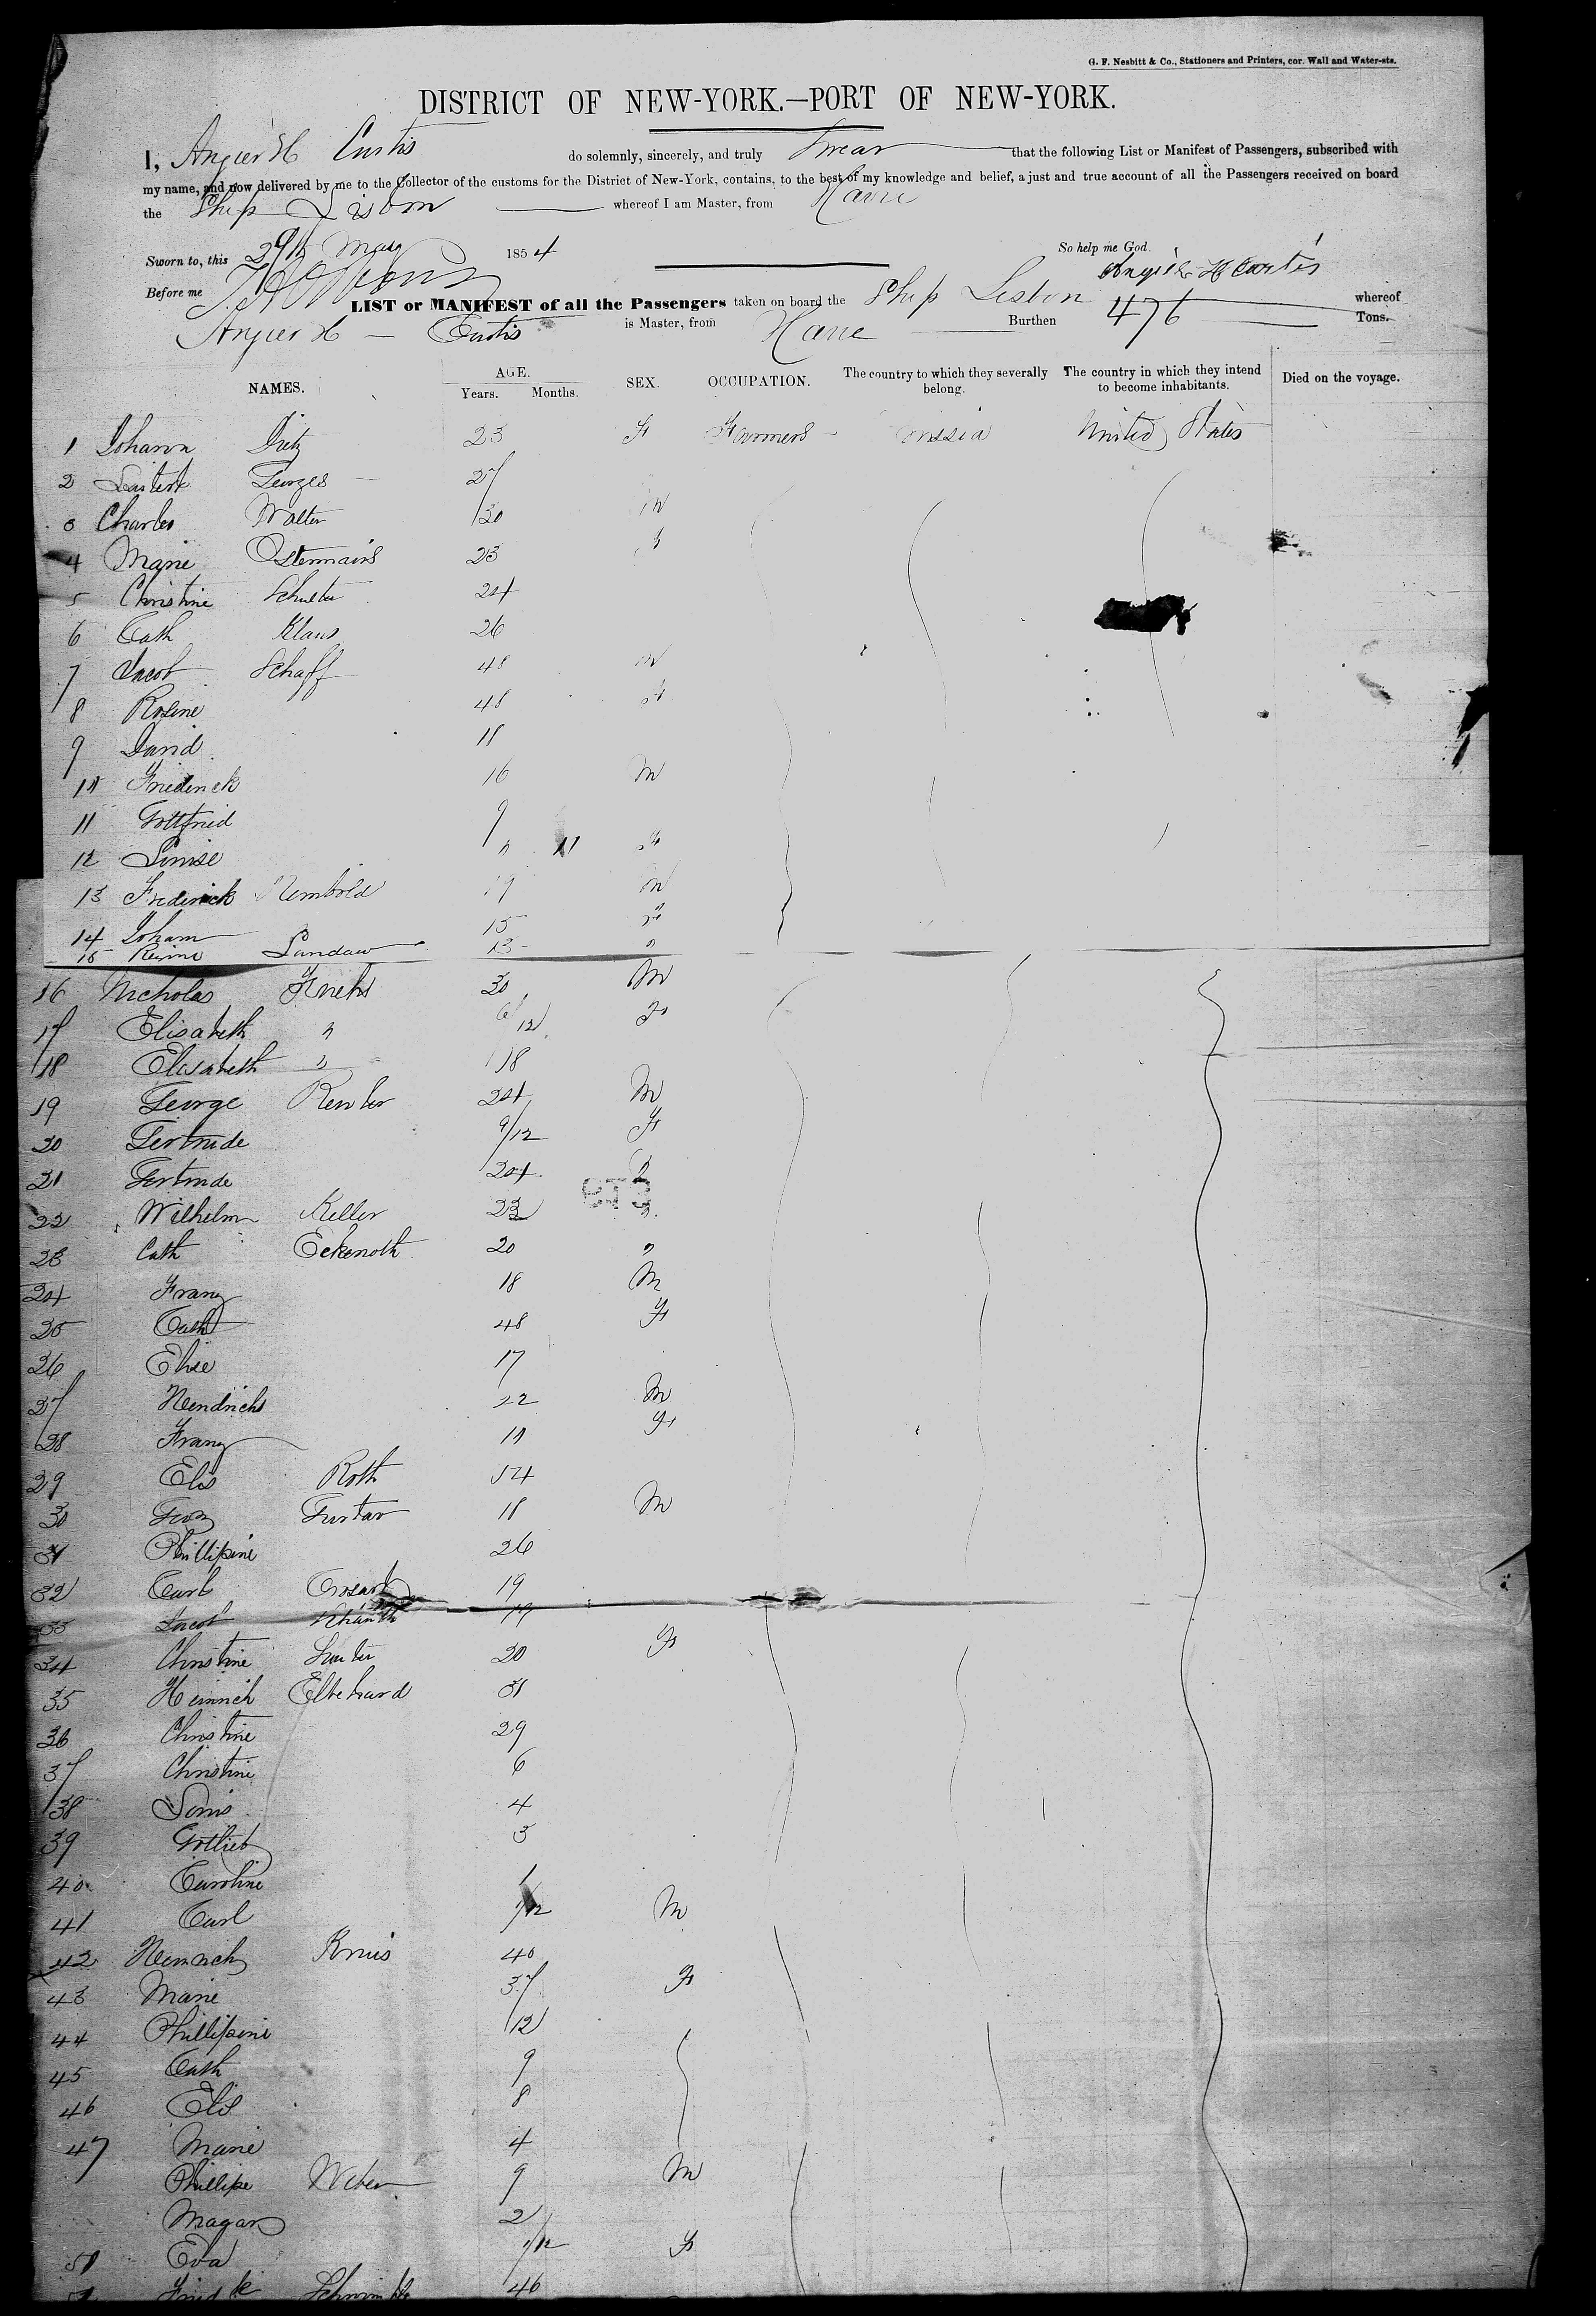 G. F. Nesbitt & Co., Stationers and Printers, cor. Wall and Water-sts.
DISTRICT OF NEW-YORK.—PORT OF NEW-YORK.
I, Angier H Curtis do solemnly, sincerely, and truly Swear that the following List or Manifest of Passengers, subscribed with
my name, and now delivered by me to the Collector of the customs for the District of New-York, contains, to the best of my knowledge and belief, a just and true account of all the Passengers received on board
the Ship Lisbon whereof I am Master, from Havre
Sworn to, this 29th May 1854 So help me God.
Before me Angier H Curtis
LIST or MANIFEST of all the Passengers taken on board the Ship Lisbon whereof
Angier H — Curtis is Master, from Havre Burthen 476 Tons.
NAMES. AGE. Years. Months. SEX. OCCUPATION. The country to which they severally belong. The country in which they intend to become inhabitants. Died on the voyage.
1 Johann 23 F Farmers United States
2 Georges 27
3 Charles Walter 30 M
4 Marie 23 F
5 Christine 24
6 Cath Klaus 26
7 Jacob Schaff 48 M
8 Rosine 48 F
9 David 11
10 Friederick 16 M
11 Gottfried 9
12 Louise " 11 F
13 Frederick Rembold 19 M
14 Johann 15 F
15 Landau 13 "
16 Nicholas 30 M
17 Elisabeth " 6/12 F
18 Elisabeth " 18
19 George 24 M
20 Gertrude 9/12 F
21 Gertrude 24 "
22 Wilhelm Keller 23 "
23 Cath Eckenoth 20 "
24 Franz 18 M
25 Cath 48 F
26 Elise 17
27 Hendrichs 22 M
28 Franz 11 F
29 Elis Roth 14
30 Gustav 18 M
31 Phillipine 26
32 Carl 19
33 Jacob 19
34 Christine 20 F
35 Heinrich Elbehard 31
36 Christine 29
37 Christine 6
38 Louis 4
39 Gottlieb 3
40 Caroline 1
41 Carl 1/12 M
42 Heinrich 40
43 Marie 37 F
44 Phillipine 12
45 Cath 9
46 Elis 8
47 Marie 4
Phillipe Weber 9 M
2
Eva 1/12 F
46